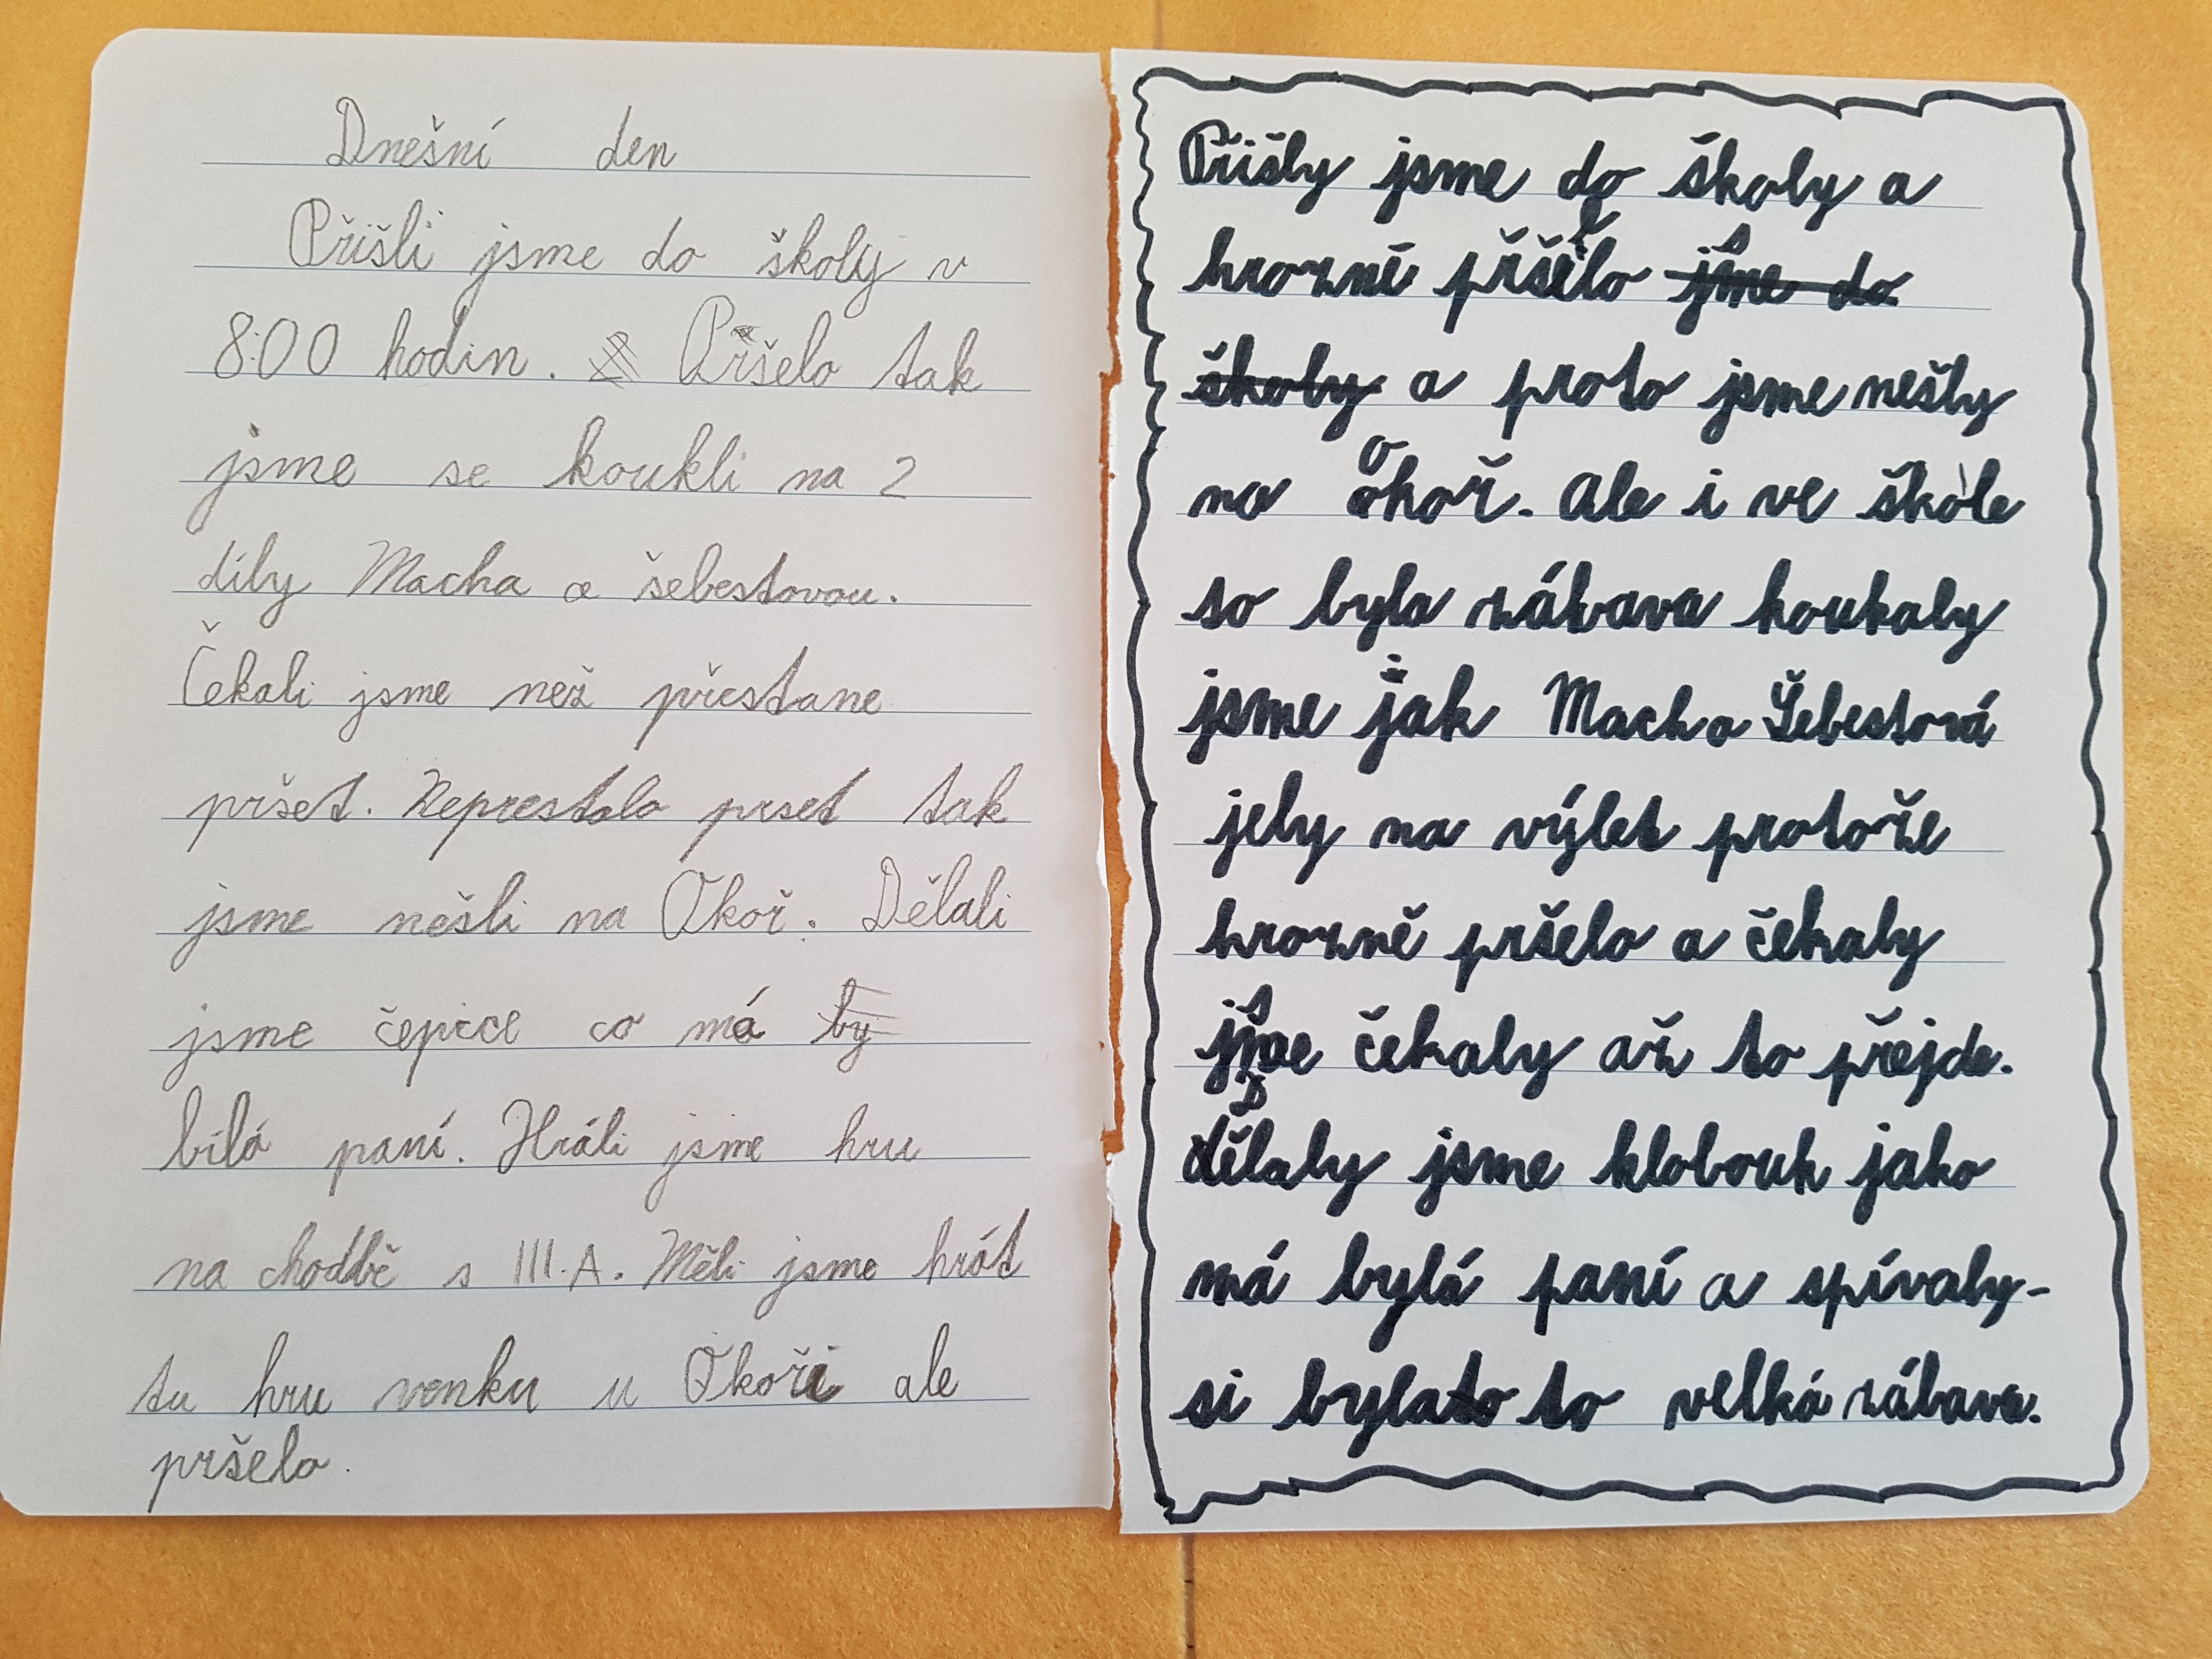 Dnešní den
Přišli jsme do školy v
8:00 hodin. Pršelo tak
jsme se koukli na 2
díly Macha a šebestovou.
Čekali jsme než přestane
pršet. Neprestalo prset tak
jsme nešli na Okoř. Dělali
jsme čepice co má by
bílá paní. Hráli jsme hru
na chodbě s III.A. Měli jsme hrát
tu hru venku u Okoři ale
pršelo.
Přišly jsme do školy a
hrozně přšelo jsme do
školy a proto jsme nešly
na Okoř. Ale i ve škole
to byla zábava koukaly
jsme jak Macha Šebestová
jely na výlet protože
hrozně pršelo a čekaly
jsme čekaly až to přejde.
Dělaly jsme klobouk jako
má bylá paní a spívaly-
si byla to velká zábava.